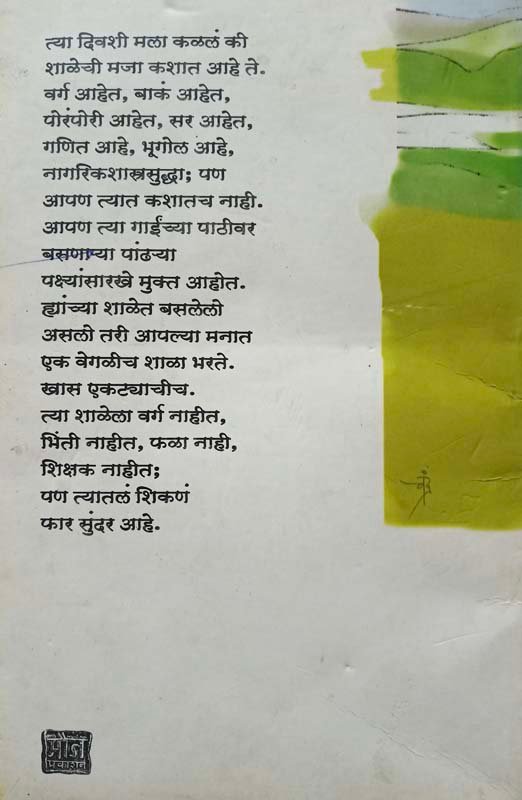 त्या दिवशी मला कळलं की
शाळेची मजा कशात आहे ते.
वर्ग आहेत, बाकं आहेत,
पोरंपोरी आहेत, सर आहेत,
गणित आहे, भूगोल आहे,
नागरिकशास्त्रसुद्धा; पण
आपण त्यात कशातच नाही.
आपण त्या गाईंच्या पाठीवर
बसणाऱ्या पांढऱ्या
पक्ष्यांसारखे मुक्त आहोत.
ह्यांच्या शाळेत बसलेलो
असलो तरी आपल्या मनात
एक वेगळीच शाळा भरते.
खास एकट्याचीच.
त्या शाळेला वर्ग नाहीत,
भिंती नाहीत, फळा नाही,
शिक्षक नाहीत;
पण त्यातलं शिकणं
फार सुंदर आहे.
मौज
प्रकाशन